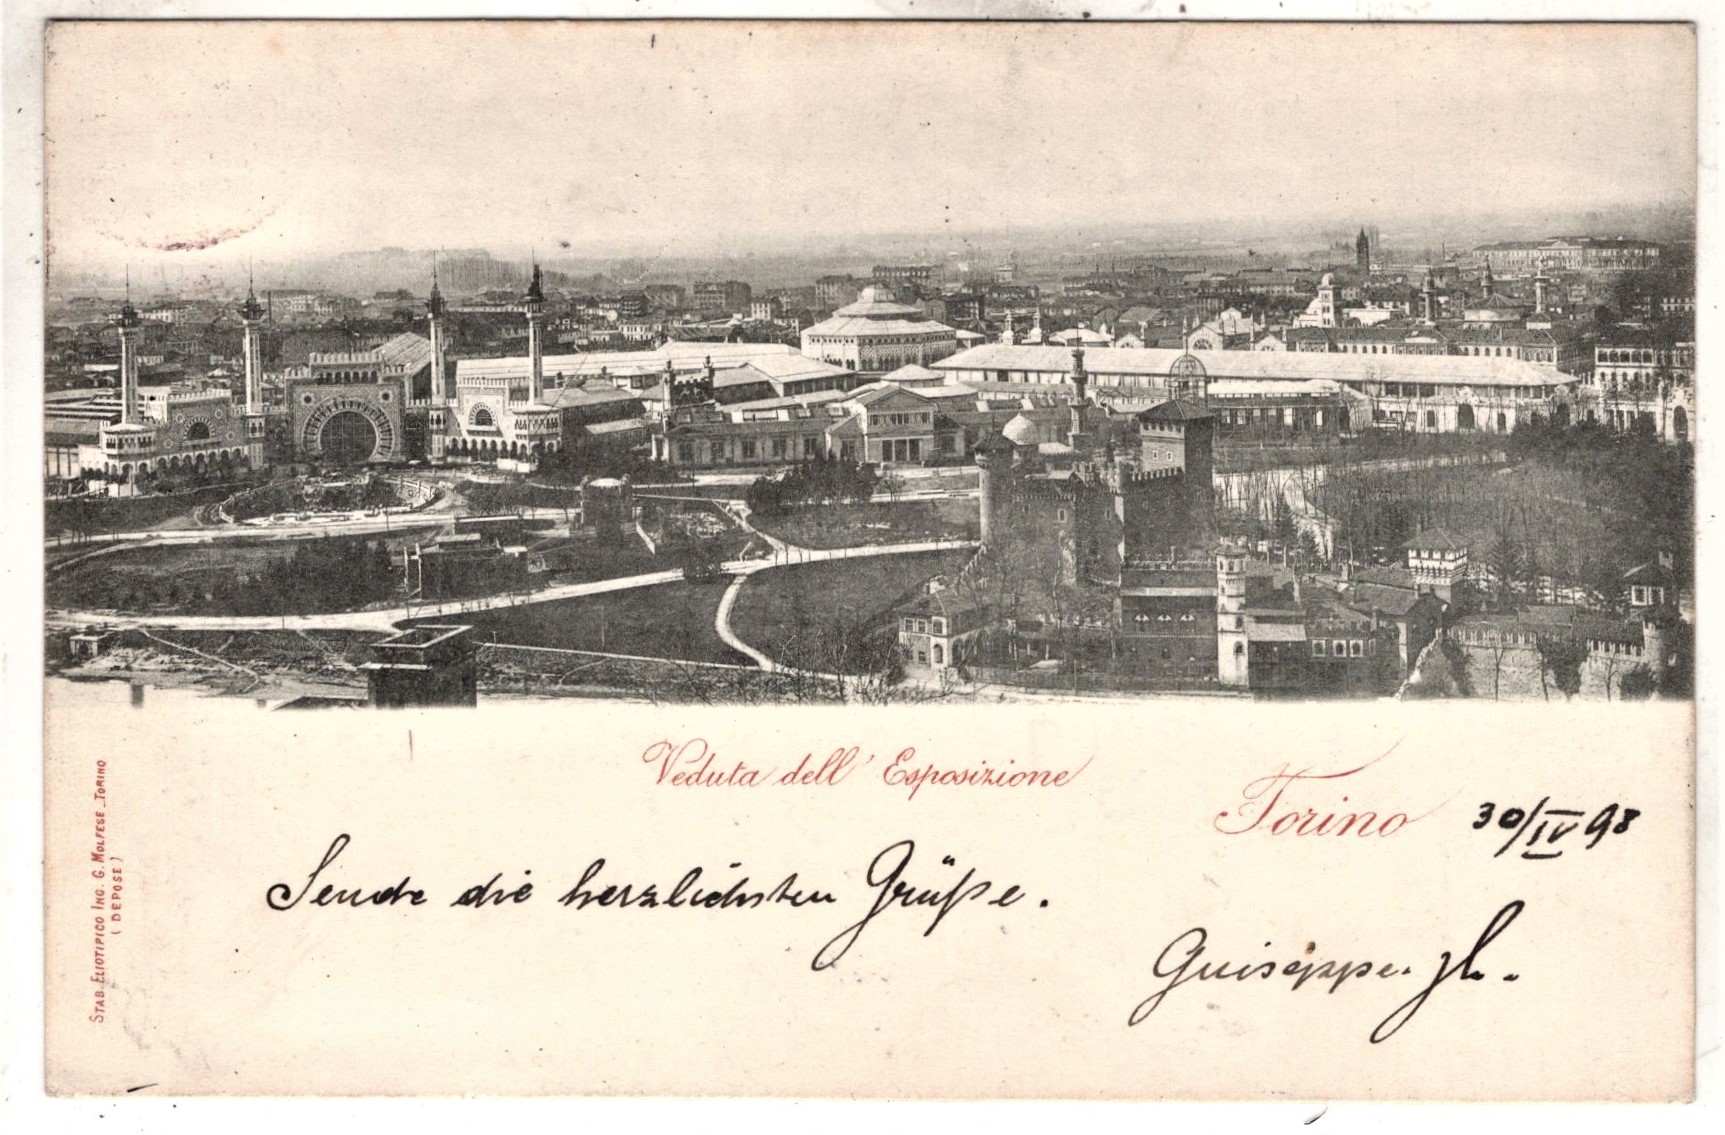 Veduta dell' Esposizione
Torino 30/IV 98
Sende die herzlichsten Grüße.
Guiseppe
STAB. ELIOTIPICO ING. G. MOLFESE _ TORINO
( DEPOSE )